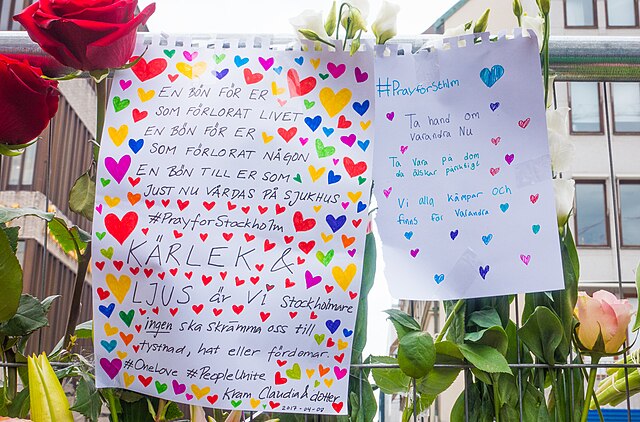 EN BÖN FÖR ER
SOM FÖRLORAT LIVET
EN BÖN FÖR ER
SOM FÖRLORAT NÅGON
EN BÖN TILL ER SOM
JUST NU VÅRDAS PÅ SJUKHUS
#PrayforStockholm
KÄRLEK &
LJUS är Vi Stockholmare
ingen ska skrämma oss till
tystnad, hat eller fördomar.
#OneLove #PeopleUnite
Kram Claudia
2017-04-08
#PrayforSthlm
Ta hand om
varandra Nu
Ta vara på dom
du älskar
Vi alla kämpar och
finns för Varandra